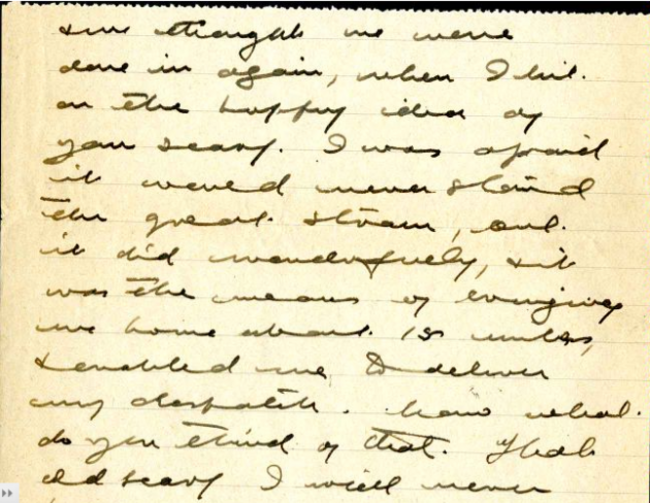 we thought we were
done in again, when I hit
on the happy idea of
your scarf. I was afraid
it would never stand
the great strain, but
it did wonderfully, & it
was the means of bringing
me home about 15 miles,
& enabled me to deliver
my despatch. Now what
do you think of that. That
old scarf I will never